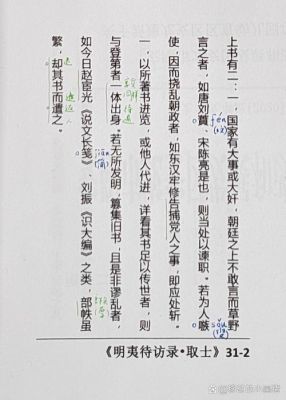 上书有二：一，国家有大事或大奸，朝廷之上不敢言而草野
言之者，如唐刘蕡、宋陈亮是也，则当处以谏职。若为人嗾
使，因而挠乱朝政者，如东汉牢修告捕党人之事，即应处斩。
一，以所著书进览，或他人代进，详看其书足以传世者，则
与登第者一体出身。若无所发明，纂集旧书，且是非谬乱者，
如今日赵宦光《说文长笺》、刘振《识大编》之类，部帙虽
繁，却其书而遣之。
fén
sǒu
jiān
《明夷待访录•取士》31-2